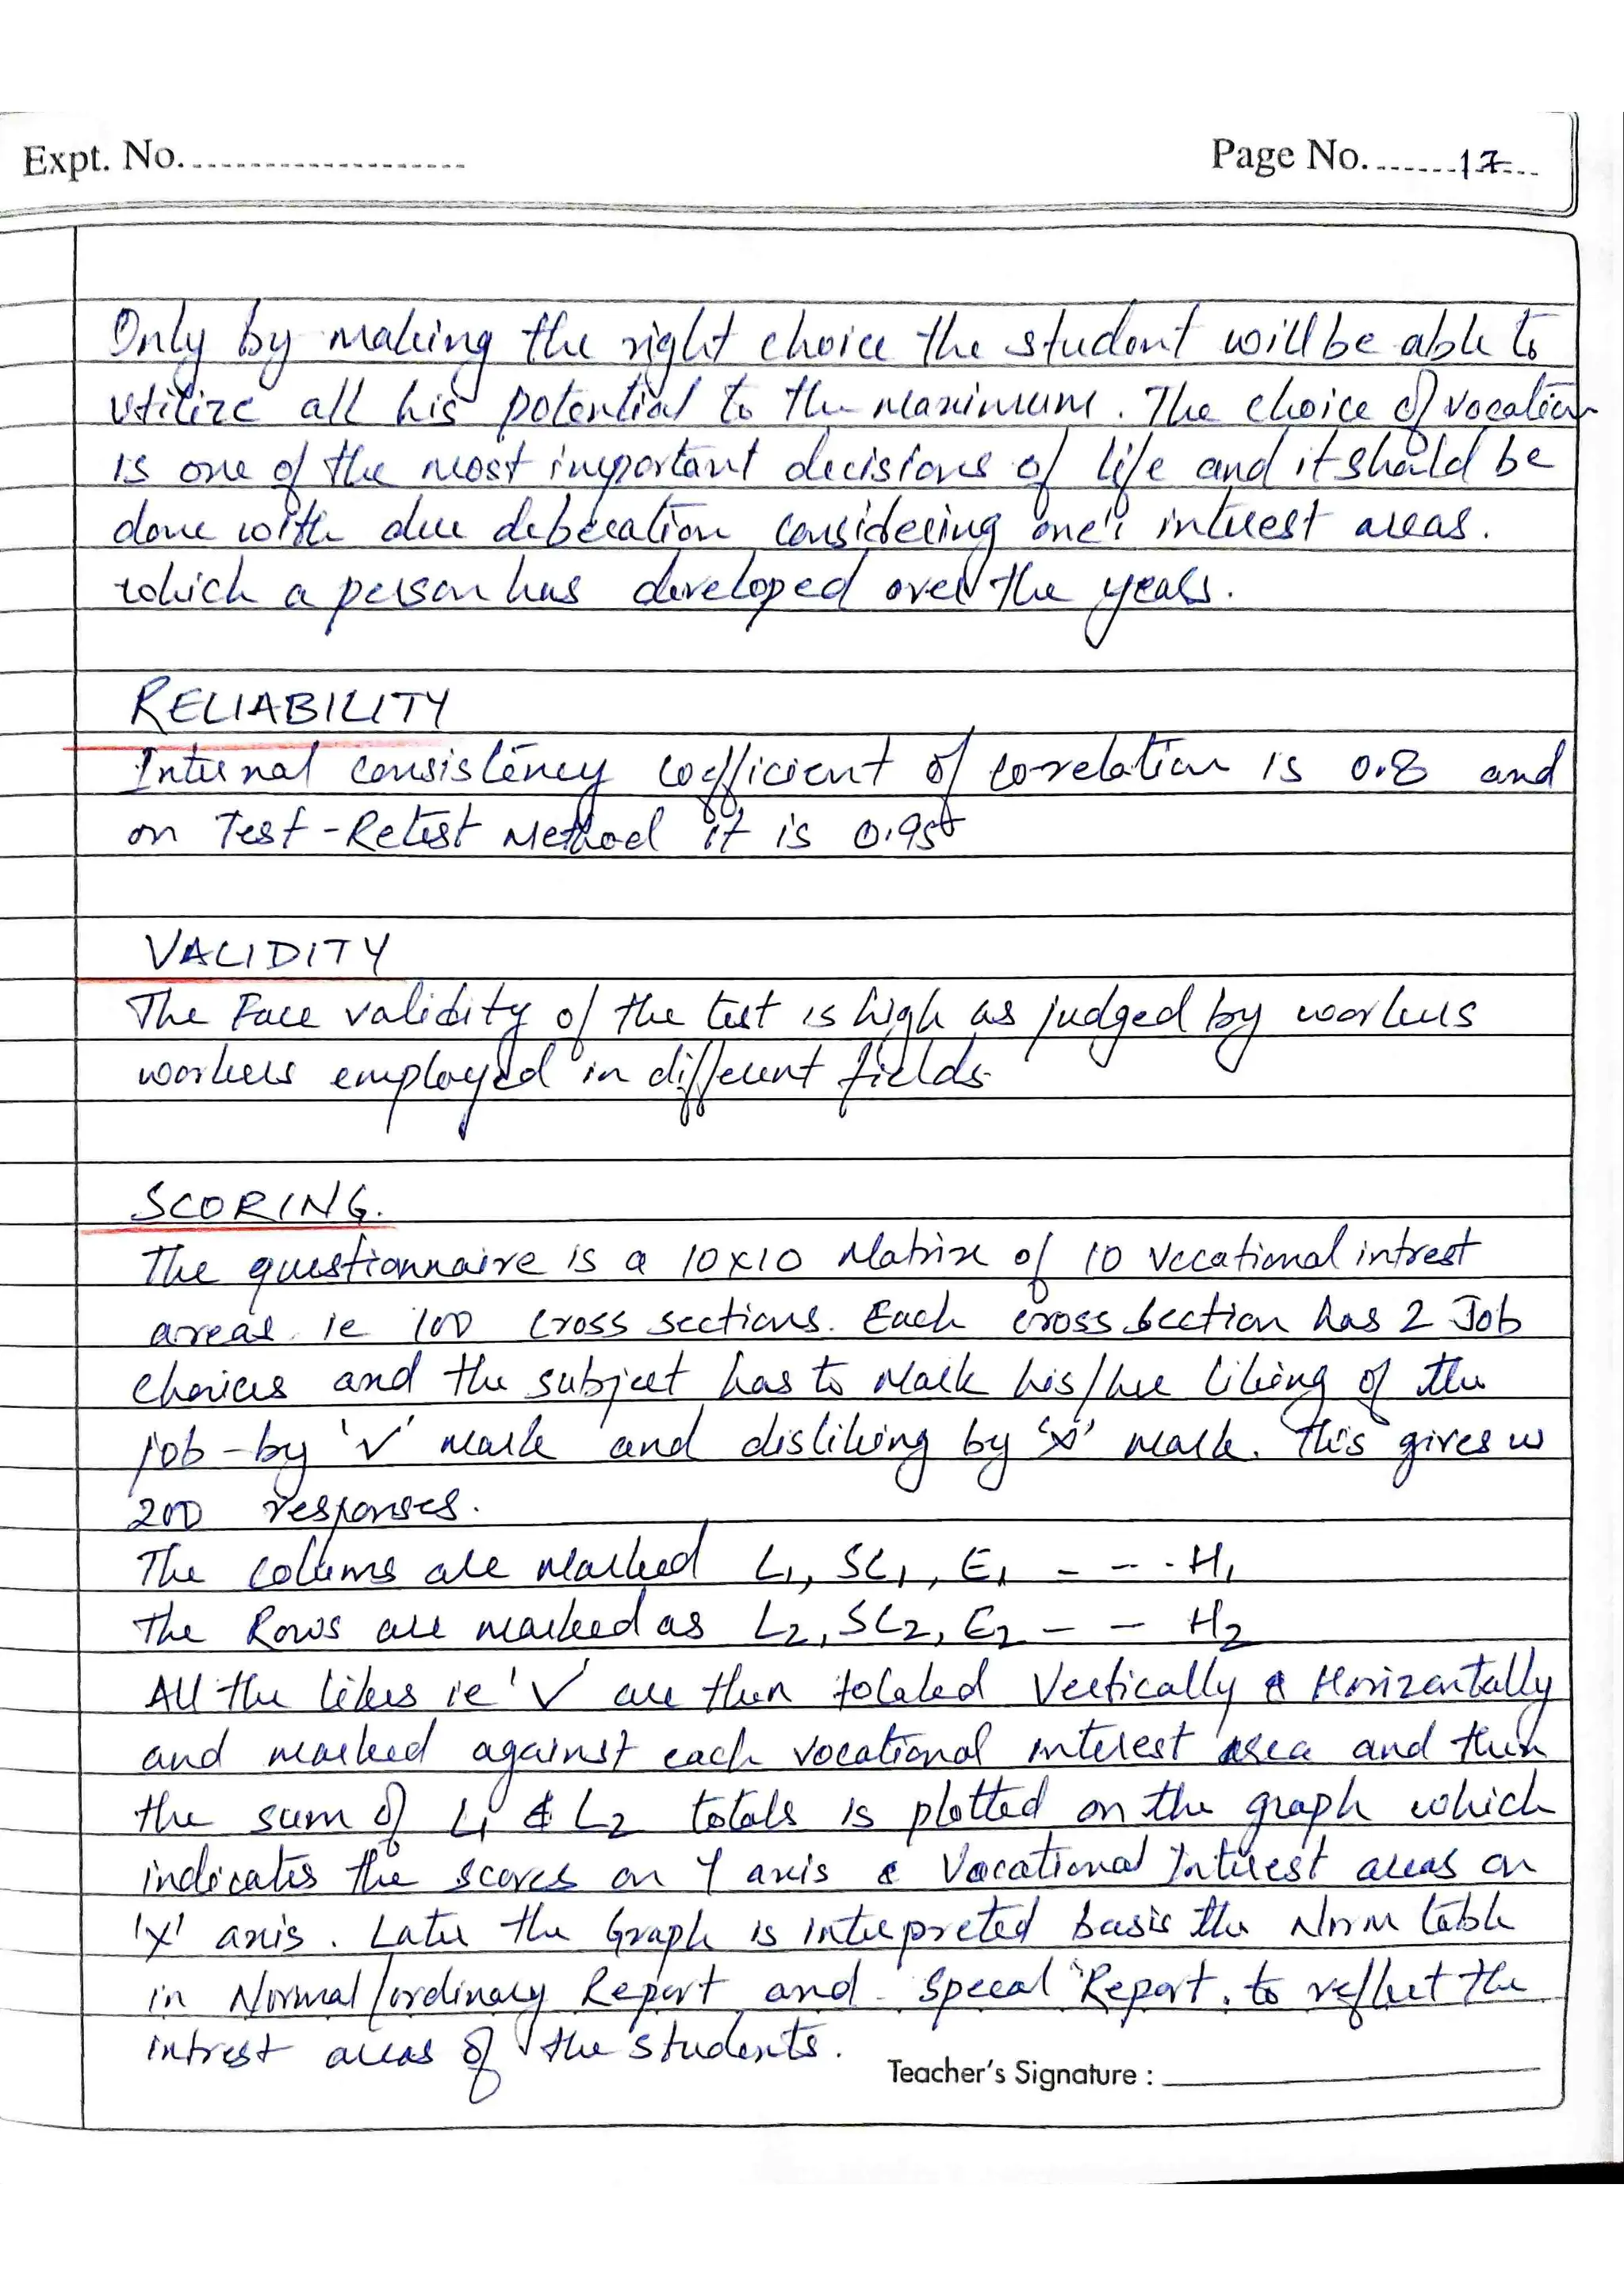 Expt. No.
Page No. 17
Only by making the right choice the student will be able to
utilize all his potential to the maximum. The choice of vocation
is one of the most important decisions of life and it should be
done with due deberation considering one's interest areas.
which a person has developed over the years.
RELIABILITY
Internal consistency coefficient of co-relation is 0.8 and
on Test-Retest Method it is 0.95
VALIDITY
The Face validity of the test is high as judged by workers
workers employed in different fields.
SCORING.
The questionnaire is a 10x10 Matrix of 10 vocational intrest
areas. ie 100 cross sections. Each cross section has 2 Job
choices and the subject has to Mark his/her liking of the
job - by '✓' mark and disliking by 'x' mark. This gives us
200 responses.
The colums are marked L1, SC1, E1 - - - H1
The Rows are marked as L2, SC2, E2 - - H2
All the likes ie '✓ are then totaled Vertically & Horizontally
and marked against each vocational interest area and then
the sum of L1 & L2 totals is plotted on the graph which
indicates the scores on Y axis & Vocational Interest areas on
'X' axis. Later the Graph is interpreted basis the Norm table
in Normal/ordinary Report and Specal Report. to reflect the
intrest areas of the students.
Teacher's Signature :